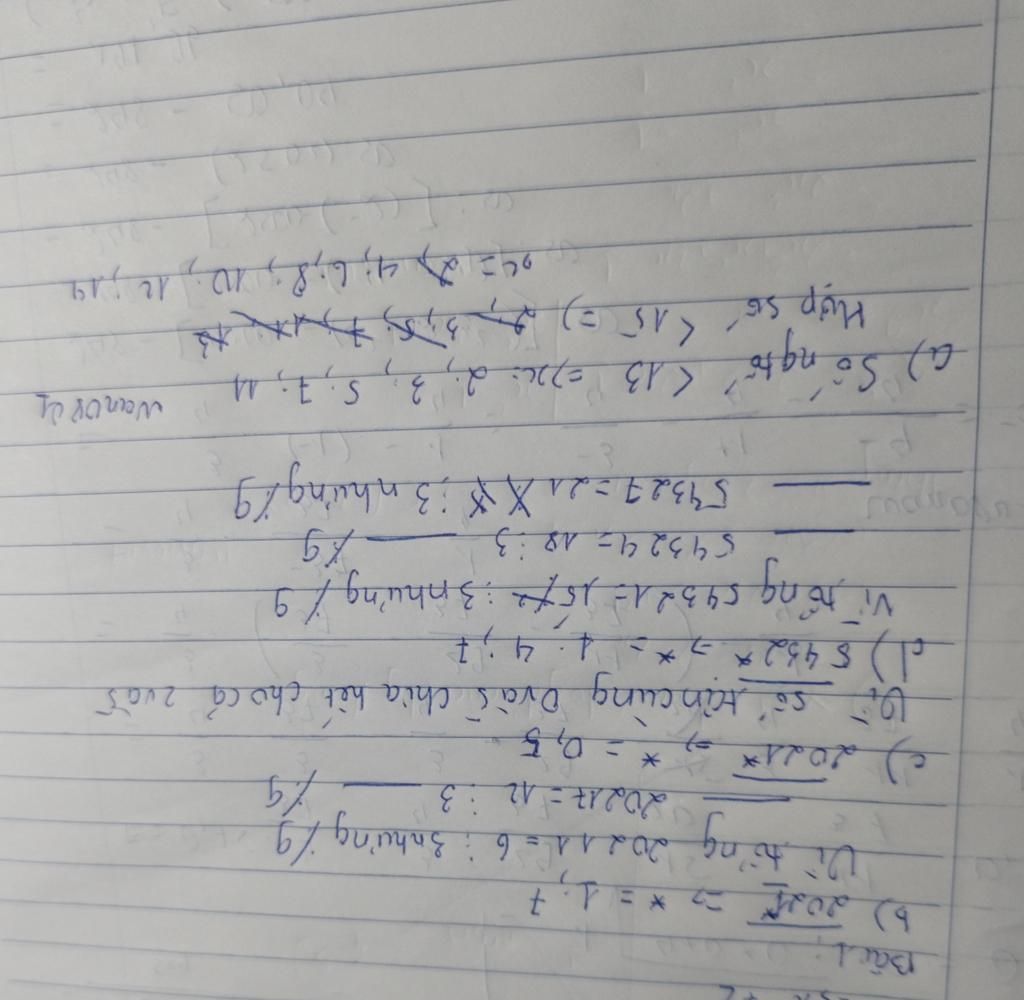 Bài 1
b) 2021* => * = 1; 7
Vì tổng 20211 = 6 ⋮ 3 nhưng ⋮̸ 9
—— 20217 = 12 ⋮ 3 —— ⋮̸ 9
c) 2021* => * = 0, 5
Vì số tận cùng 0 và 5 chia hết cho cả 2 và 5
d) 5432* => * = 1; 4; 7
Vì tổng 54321 = 15 ⋮ 3 nhưng ⋮̸ 9
—— 54324 = 18 ⋮ 3 —— ⋮̸ 9
—— 54327 = 21 ⋮ 3 nhưng ⋮̸ 9
a) Số ngtố < 13 => x = 2; 3; 5; 7; 11
Hợp số < 15 => 2; 3; 5; 7; 11; 13
x = 2, 4; 6; 8; 10; 12; 14